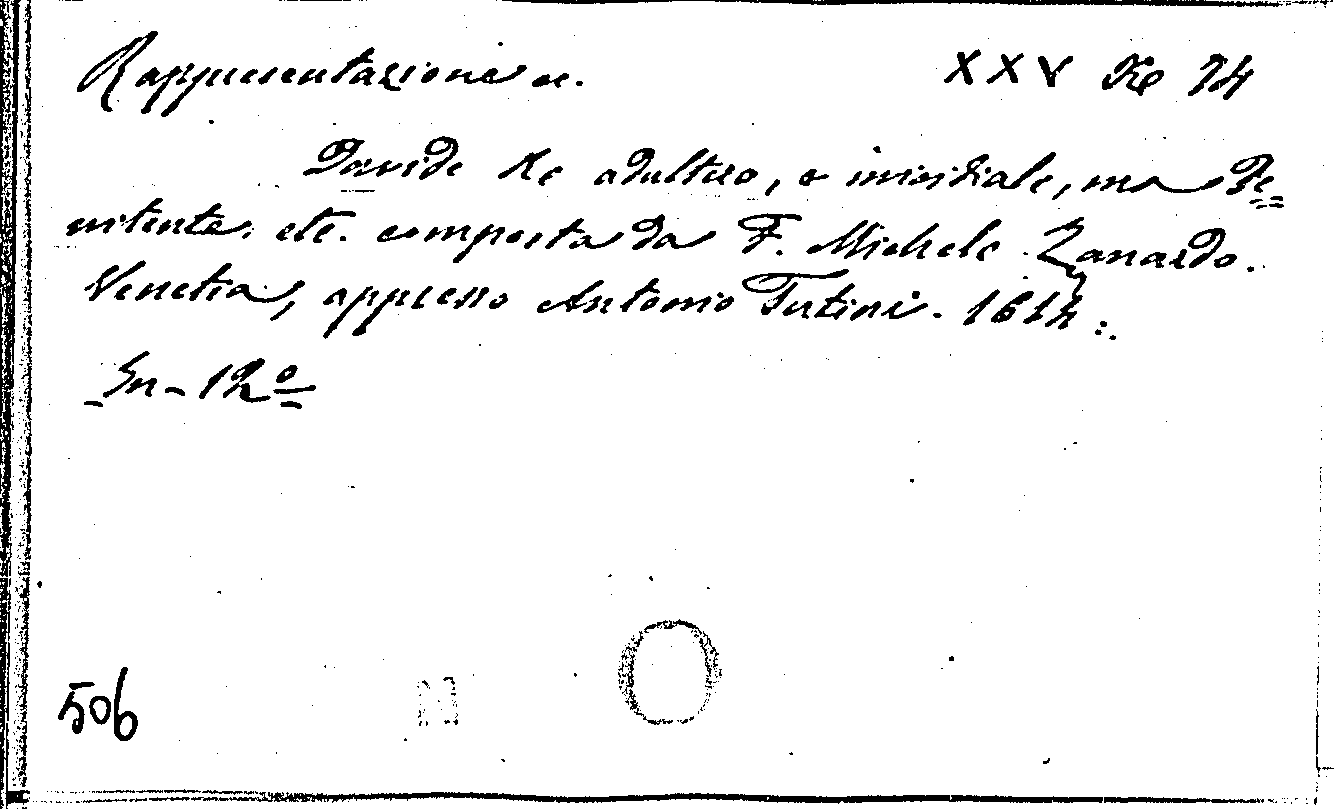 Rappresentazione ec. XXV Re 74
Davide Re adultero, o micidiale, ma Pe=
nitente. etc. composta da F. Michele Zanardo.
Venetia, appresso Antonio Turini. 1614.
In-12º
506
N O